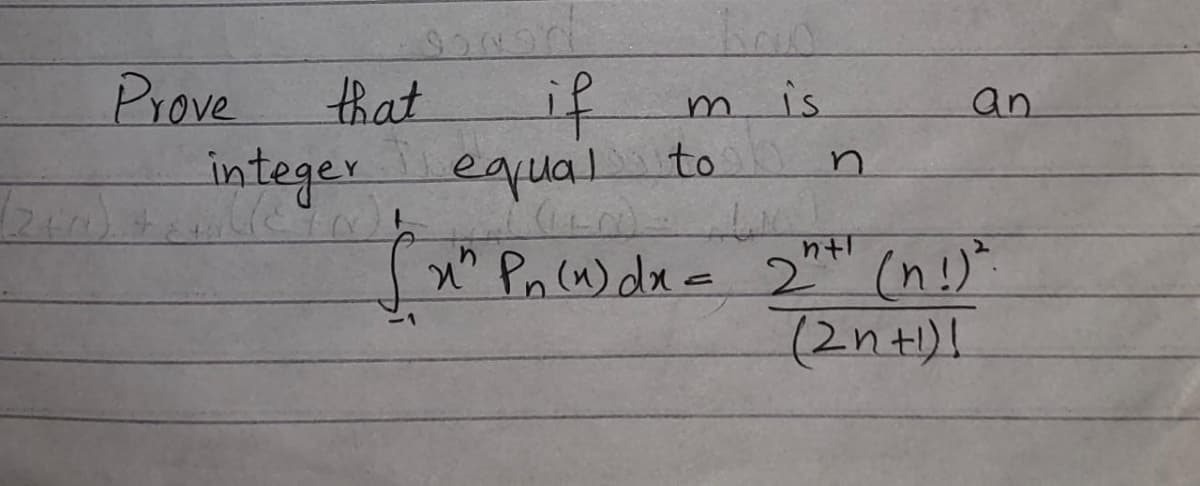 Prove that if m is an
integer equal to n
∫₋₁¹ xⁿ Pₙ(x) dx = 2ⁿ⁺¹ (n!)².
(2n+1)!